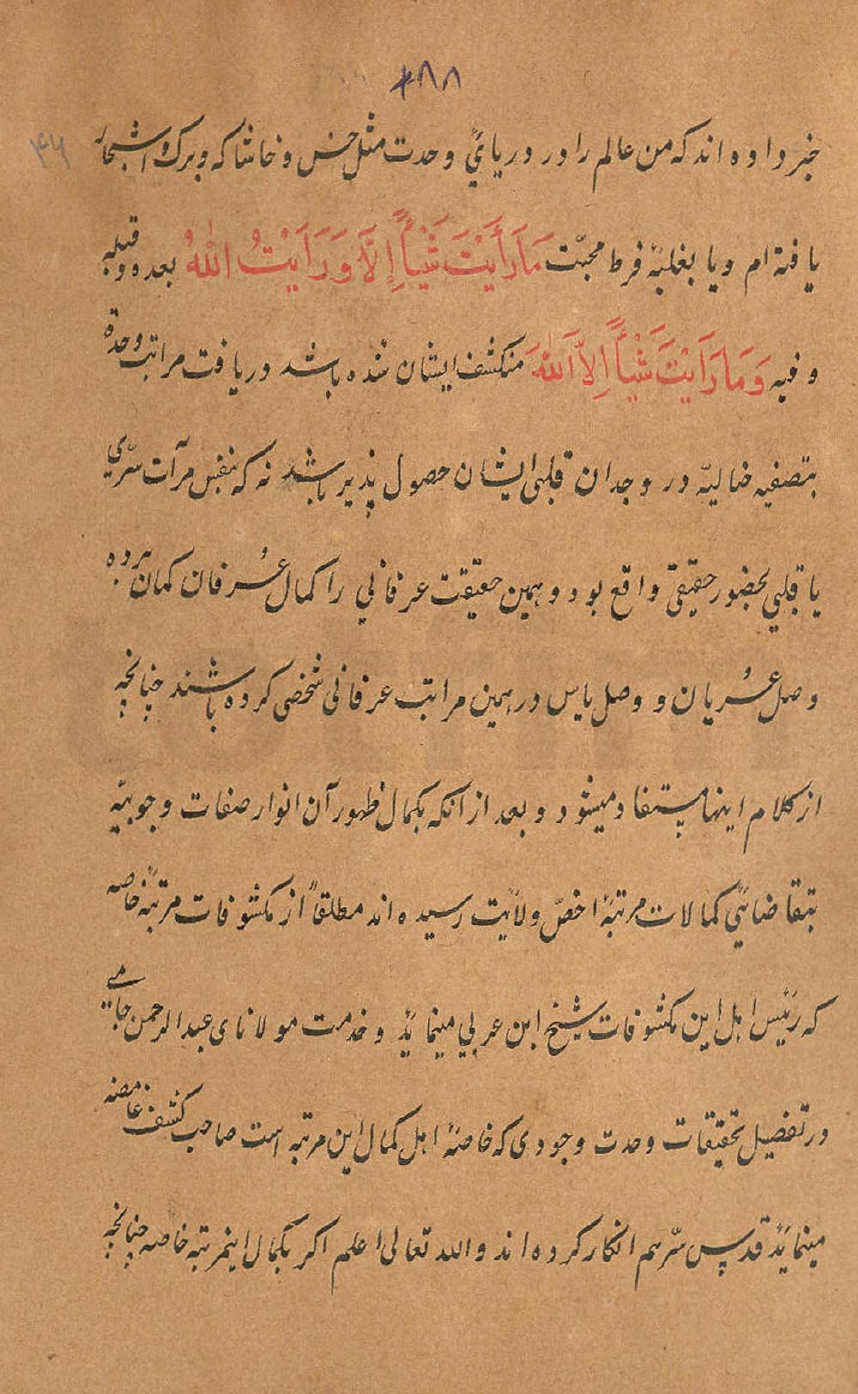 ۲۸۸
۴۶
خبر داده اند که من عالم را در دریائی وحدت مثل خس و خاشاکه و برک اشجار
یافته ام و یا بغلبهٔ فرط محبّت مَا رَأَیْتَ شَیْأً إِلَّا وَرَایْتُ اللهُ بعده و قبله
و فیه وَمَا رَایْتَ شَیْأً اِلَّا اللهَ منکشف ایشان شده باشد دریافت مراتب وحدة
بتصفیه خالیه در وجدان قلبی ایشان حصول پذیر باشد نه که بنفس مرآت سرّی
یا قلبی بحضور حقیقی واقع بود و همین حقیقت عرفانی را کمال عُرفان کمان برده
وصل عُریان و وصل یاس در همین مراتب عرفانی شخصی کرده باشند چنانچه
از کلام اینها مستفاد میشود و بعد از آنکه بکمال ظهور آن انوار صفات وجوبیّه
بتقاضائی کمالات مرتبهٔ اخصّ ولایت رسیده اند مطلقاً از مکشوفات مرتبهٔ خاصه
که رئیس اهل این مکشوفات شیخ ابن عربی مینماید و خدمت مولانای عبد الرحمن جامے
در تفضیل تحقیقات وحدت وجودی که خاصهٔ اهل کمال این مرتبه است صاحب کشف غامضه
مینماید قدس سرّهم انکار کرده اند والله تعالی اعلم اکر بکمال اینمرتبه خاصه چنانچه